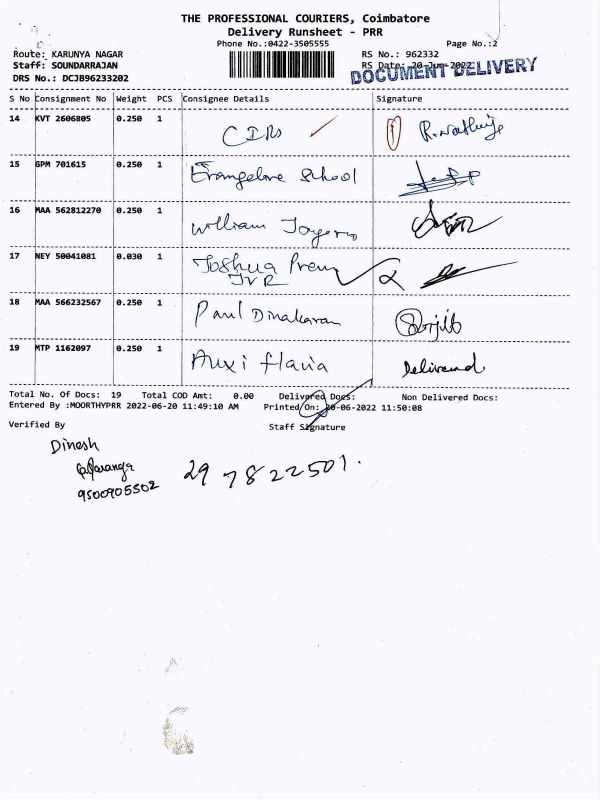 THE PROFESSIONAL COURIERS, Coimbatore
Delivery Runsheet - PRR
Phone No.:0422-3505555 Page No.:2
Route: KARUNYA NAGAR RS No.: 962332
Staff: SOUNDARRAJAN RS Date: 20-Jun-2022
DRS No.: DCJB96233202 DOCUMENT DELIVERY
S No Consignment No Weight PCS Consignee Details Signature
14 KVT 2606805 0.250 1 CIRs
15 GPM 701615 0.250 1 School
16 MAA 562812270 0.250 1 William
17 NEY 50041081 0.030 1 Joshua Prem
JVR
18 MAA 566232567 0.250 1 Paul Dinakaran
19 MTP 1162097 0.250 1 Auxi flavia Delivered
Total No. Of Docs: 19 Total COD Amt: 0.00 Delivered Docs: Non Delivered Docs:
Entered By :MOORTHYPRR 2022-06-20 11:49:10 AM Printed On: 20-06-2022 11:50:08
Verified By Staff Signature
Dinesh
9500905502 29 7822501.